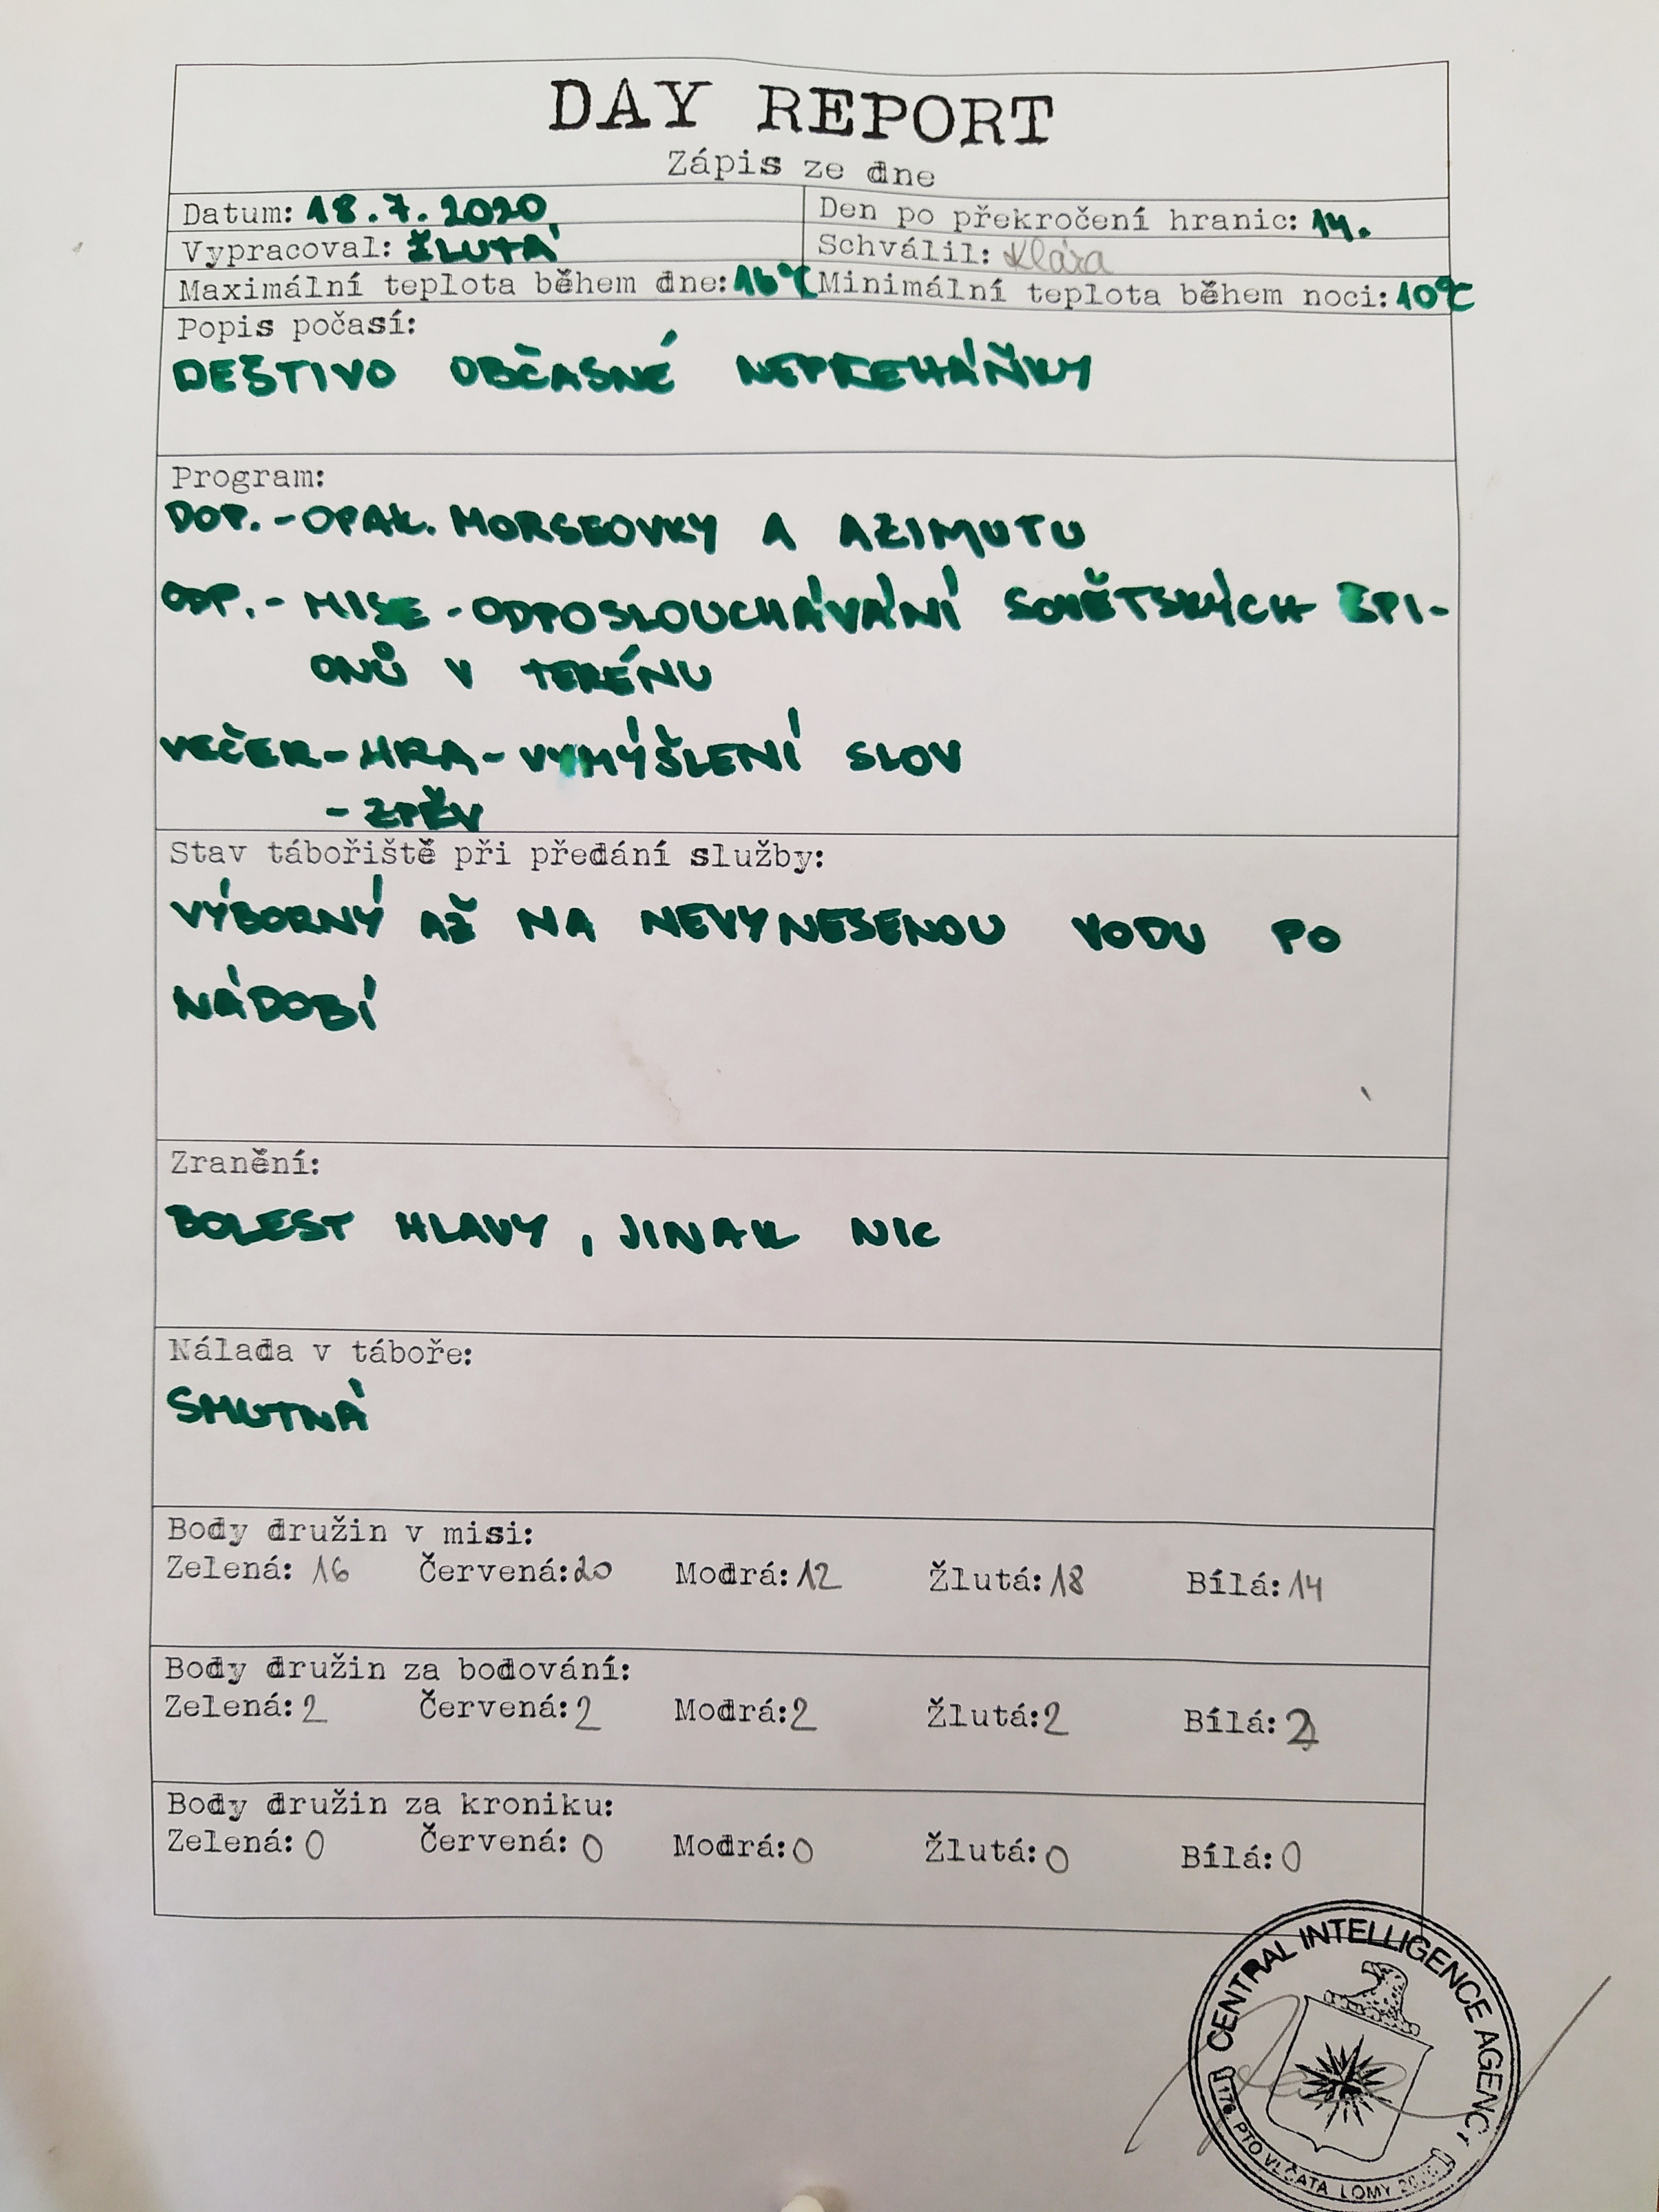 DAY REPORT
Zápis ze dne
Datum: 18.7.2020
Den po překročení hranic: 14.
Vypracoval: ŽLUTÁ
Schválil: Klára
Maximální teplota během dne: 16°C
Minimální teplota během noci: 10°C
Popis počasí:
DEŠTIVO OBČASNÉ NEPŘEHÁŇKY
Program:
DOP. - OPAK. MORSEOVKY A AZIMUTU
ODP. - MISE - ODPOSLOUCHÁVÁNÍ SOVĚTSKÝCH ŠPI-
ONŮ V TERÉNU
VEČER - HRA - VYMÝŠLENÍ SLOV
- ZPĚV
Stav tábořiště při předání služby:
VÝBORNÝ AŽ NA NEVYNESENOU VODU PO
NÁDOBÍ
Zranění:
BOLEST HLAVY, JINAK NIC
Nálada v táboře:
SMUTNÁ
Body družin v misi:
Zelená: 16 Červená: 20 Modrá: 12 Žlutá: 18 Bílá: 14
Body družin za bodování:
Zelená: 2 Červená: 2 Modrá: 2 Žlutá: 2 Bílá: 2
Body družin za kroniku:
Zelená: 0 Červená: 0 Modrá: 0 Žlutá: 0 Bílá: 0
CENTRAL INTELLIGENCE AGENCY
176. PTO VLČATA LOMY